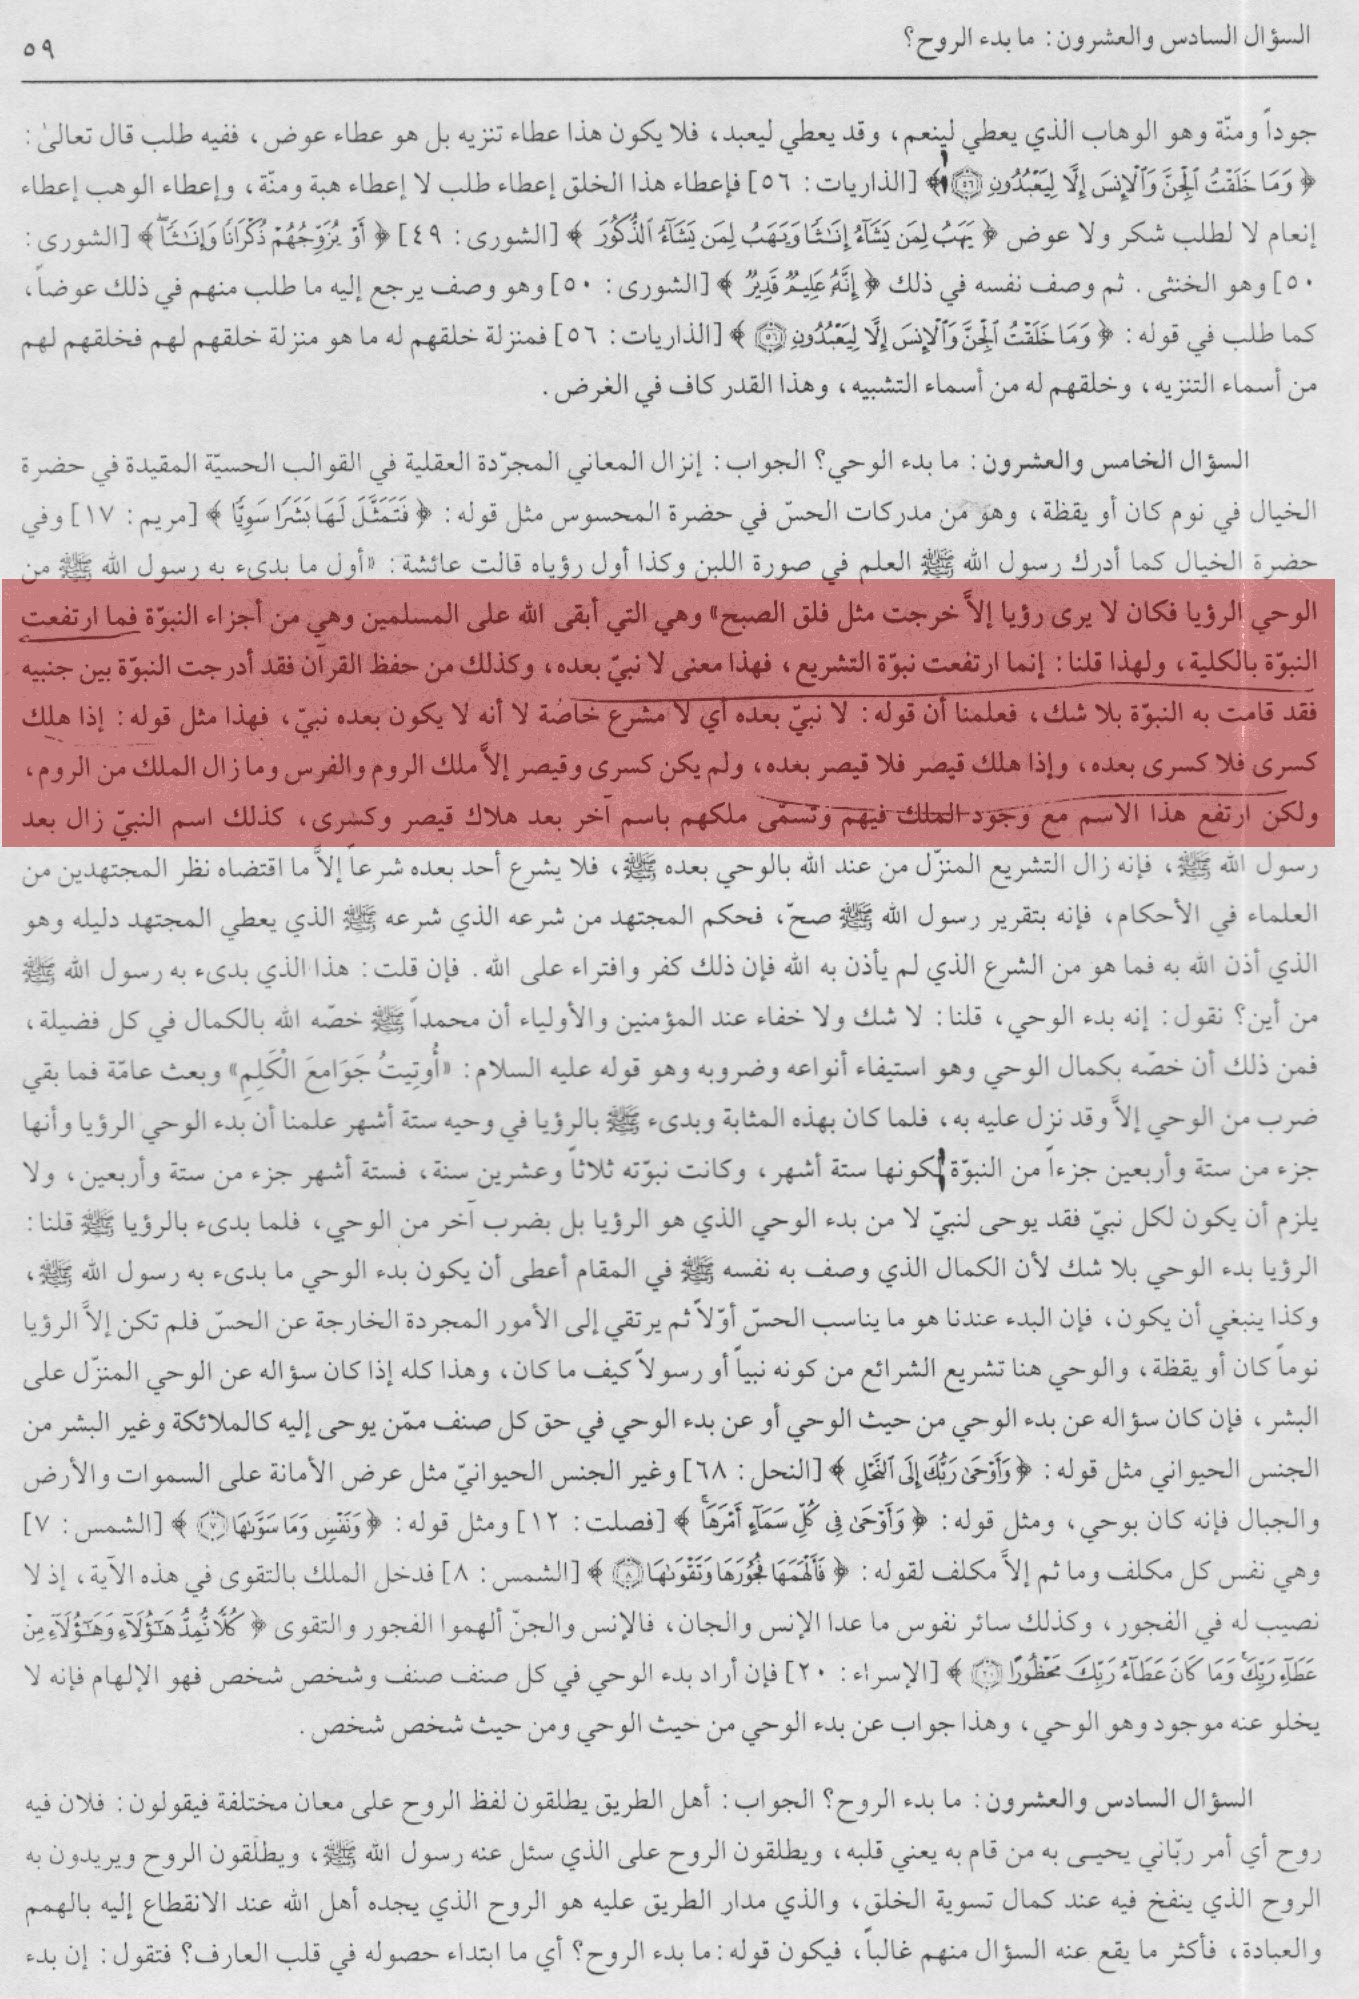 السؤال السادس والعشرون: ما بدء الروح؟
٥٩
جوداً ومنّة وهو الوهاب الذي يعطي لينعم، وقد يعطي ليعبد، فلا يكون هذا عطاء تنزيه بل هو عطاء عوض، ففيه طلب قال تعالىٰ:
﴿وَمَا خَلَقْتُ ٱلْجِنَّ وَٱلْإِنسَ إِلَّا لِيَعْبُدُونِ ۝٥٦﴾ [الذاريات: ٥٦] فإعطاء هذا الخلق إعطاء طلب لا إعطاء هبة ومنّة، وإعطاء الوهب إعطاء
إنعام لا لطلب شكر ولا عوض ﴿يَهَبُ لِمَن يَشَآءُ إِنَٰثًا وَيَهَبُ لِمَن يَشَآءُ ٱلذُّكُورَ﴾ [الشورى: ٤٩] ﴿أَوْ يُزَوِّجُهُمْ ذُكْرَانًا وَإِنَٰثًاۖ﴾ [الشورى:
٥٠] وهو الخنثى. ثم وصف نفسه في ذلك ﴿إِنَّهُۥ عَلِيمٌ قَدِيرٌ﴾ [الشورى: ٥٠] وهو وصف يرجع إليه ما طلب منهم في ذلك عوضاً،
كما طلب في قوله: ﴿وَمَا خَلَقْتُ ٱلْجِنَّ وَٱلْإِنسَ إِلَّا لِيَعْبُدُونِ ۝٥٦﴾ [الذاريات: ٥٦] فمنزلة خلقهم له ما هو منزلة خلقهم لهم فخلقهم لهم
من أسماء التنزيه، وخلقهم له من أسماء التشبيه، وهذا القدر كاف في الغرض.
السؤال الخامس والعشرون: ما بدء الوحي؟ الجواب: إنزال المعاني المجرّدة العقلية في القوالب الحسيّة المقيدة في حضرة
الخيال في نوم كان أو يقظة، وهو من مدركات الحسّ في حضرة المحسوس مثل قوله: ﴿فَتَمَثَّلَ لَهَا بَشَرًا سَوِيًّا﴾ [مريم: ١٧] وفي
حضرة الخيال كما أدرك رسول الله ﷺ العلم في صورة اللبن وكذا أول رؤياه قالت عائشة: «أول ما بدىء به رسول الله ﷺ من
الوحي الرؤيا فكان لا يرى رؤيا إلاَّ خرجت مثل فلق الصبح» وهي التي أبقى الله على المسلمين وهي من أجزاء النبوّة فما ارتفعت
النبوّة بالكلية، ولهذا قلنا: إنما ارتفعت نبوّة التشريع، فهذا معنى لا نبيّ بعده، وكذلك من حفظ القرآن فقد أدرجت النبوّة بين جنبيه
فقد قامت به النبوّة بلا شك، فعلمنا أن قوله: لا نبيّ بعده أي لا مشرع خاصة لا أنه لا يكون بعده نبيّ، فهذا مثل قوله: إذا هلك
كسرى فلا كسرى بعده، وإذا هلك قيصر فلا قيصر بعده، ولم يكن كسرى وقيصر إلاَّ ملك الروم والفرس وما زال الملك من الروم،
ولكن ارتفع هذا الاسم مع وجود الملك فيهم وتسمّى ملكهم باسم آخر بعد هلاك قيصر وكسرى، كذلك اسم النبيّ زال بعد
رسول الله ﷺ، فإنه زال التشريع المنزّل من عند الله بالوحي بعده ﷺ، فلا يشرع أحد بعده شرعاً إلاَّ ما اقتضاه نظر المجتهدين من
العلماء في الأحكام، فإنه بتقرير رسول الله ﷺ صحّ، فحكم المجتهد من شرعه الذي شرعه ﷺ الذي يعطي المجتهد دليله وهو
الذي أذن الله به فما هو من الشرع الذي لم يأذن به الله فإن ذلك كفر وافتراء على الله. فإن قلت: هذا الذي بدىء به رسول الله ﷺ
من أين؟ نقول: إنه بدء الوحي، قلنا: لا شك ولا خفاء عند المؤمنين والأولياء أن محمداً ﷺ خصّه الله بالكمال في كل فضيلة،
فمن ذلك أن خصّه بكمال الوحي وهو استيفاء أنواعه وضروبه وهو قوله عليه السلام: «أُوتِيتُ جَوَامعَ الْكَلِمِ» وبعث عامّة فما بقي
ضرب من الوحي إلاَّ وقد نزل عليه به، فلما كان بهذه المثابة وبدىء ﷺ بالرؤيا في وحيه ستة أشهر علمنا أن بدء الوحي الرؤيا وأنها
جزء من ستة وأربعين جزءاً من النبوّة لكونها ستة أشهر، وكانت نبوّته ثلاثاً وعشرين سنة، فستة أشهر جزء من ستة وأربعين، ولا
يلزم أن يكون لكل نبيّ فقد يوحى لنبيّ لا من بدء الوحي الذي هو الرؤيا بل بضرب آخر من الوحي، فلما بدىء بالرؤيا ﷺ قلنا:
الرؤيا بدء الوحي بلا شك لأن الكمال الذي وصف به نفسه ﷺ في المقام أعطى أن يكون بدء الوحي ما بدىء به رسول الله ﷺ،
وكذا ينبغي أن يكون، فإن البدء عندنا هو ما يناسب الحسّ أوّلاً ثم يرتقي إلى الأمور المجردة الخارجة عن الحسّ فلم تكن إلاَّ الرؤيا
نوماً كان أو يقظة، والوحي هنا تشريع الشرائع من كونه نبياً أو رسولاً كيف ما كان، وهذا كله إذا كان سؤاله عن الوحي المنزّل على
البشر، فإن كان سؤاله عن بدء الوحي من حيث الوحي أو عن بدء الوحي في حق كل صنف ممّن يوحى إليه كالملائكة وغير البشر من
الجنس الحيواني مثل قوله: ﴿وَأَوْحَىٰ رَبُّكَ إِلَى ٱلنَّحْلِ﴾ [النحل: ٦٨] وغير الجنس الحيوانيّ مثل عرض الأمانة على السموات والأرض
والجبال فإنه كان بوحي، ومثل قوله: ﴿وَأَوْحَىٰ فِى كُلِّ سَمَآءٍ أَمْرَهَاۚ﴾ [فصلت: ١٢] ومثل قوله: ﴿وَنَفْسٍ وَمَا سَوَّىٰهَا ۝٧﴾ [الشمس: ٧]
وهي نفس كل مكلف وما ثم إلاَّ مكلف لقوله: ﴿فَأَلْهَمَهَا فُجُورَهَا وَتَقْوَىٰهَا ۝٨﴾ [الشمس: ٨] فدخل الملك بالتقوى في هذه الآية، إذ لا
نصيب له في الفجور، وكذلك سائر نفوس ما عدا الإنس والجان، فالإنس والجنّ ألهموا الفجور والتقوى ﴿كُلًّا نُّمِدُّ هَٰٓؤُلَآءِ وَهَٰٓؤُلَآءِ مِنْ
عَطَآءِ رَبِّكَۚ وَمَا كَانَ عَطَآءُ رَبِّكَ مَحْظُورًا ۝٢٠﴾ [الإسراء: ٢٠] فإن أراد بدء الوحي في كل صنف صنف وشخص شخص فهو الإلهام فإنه لا
يخلو عنه موجود وهو الوحي، وهذا جواب عن بدء الوحي من حيث الوحي ومن حيث شخص شخص.
السؤال السادس والعشرون: ما بدء الروح؟ الجواب: أهل الطريق يطلقون لفظ الروح على معان مختلفة فيقولون: فلان فيه
روح أي أمر ربّاني يحيـى به من قام به يعني قلبه، ويطلقون الروح على الذي سئل عنه رسول الله ﷺ، ويطلقون الروح ويريدون به
الروح الذي ينفخ فيه عند كمال تسوية الخلق، والذي مدار الطريق عليه هو الروح الذي يجده أهل الله عند الانقطاع إليه بالهمم
والعبادة، فأكثر ما يقع عنه السؤال منهم غالباً، فيكون قوله: ما بدء الروح؟ أي ما ابتداء حصوله في قلب العارف؟ فتقول: إن بدء